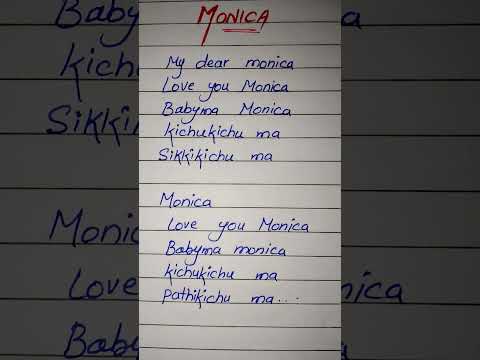 MONICA
My dear monica
Love you Monica
Babyma Monica
kichukichu ma
Sikkikichu ma
Monica
Love you Monica
Babyma monica
kichukichu ma
Pathikichu ma...